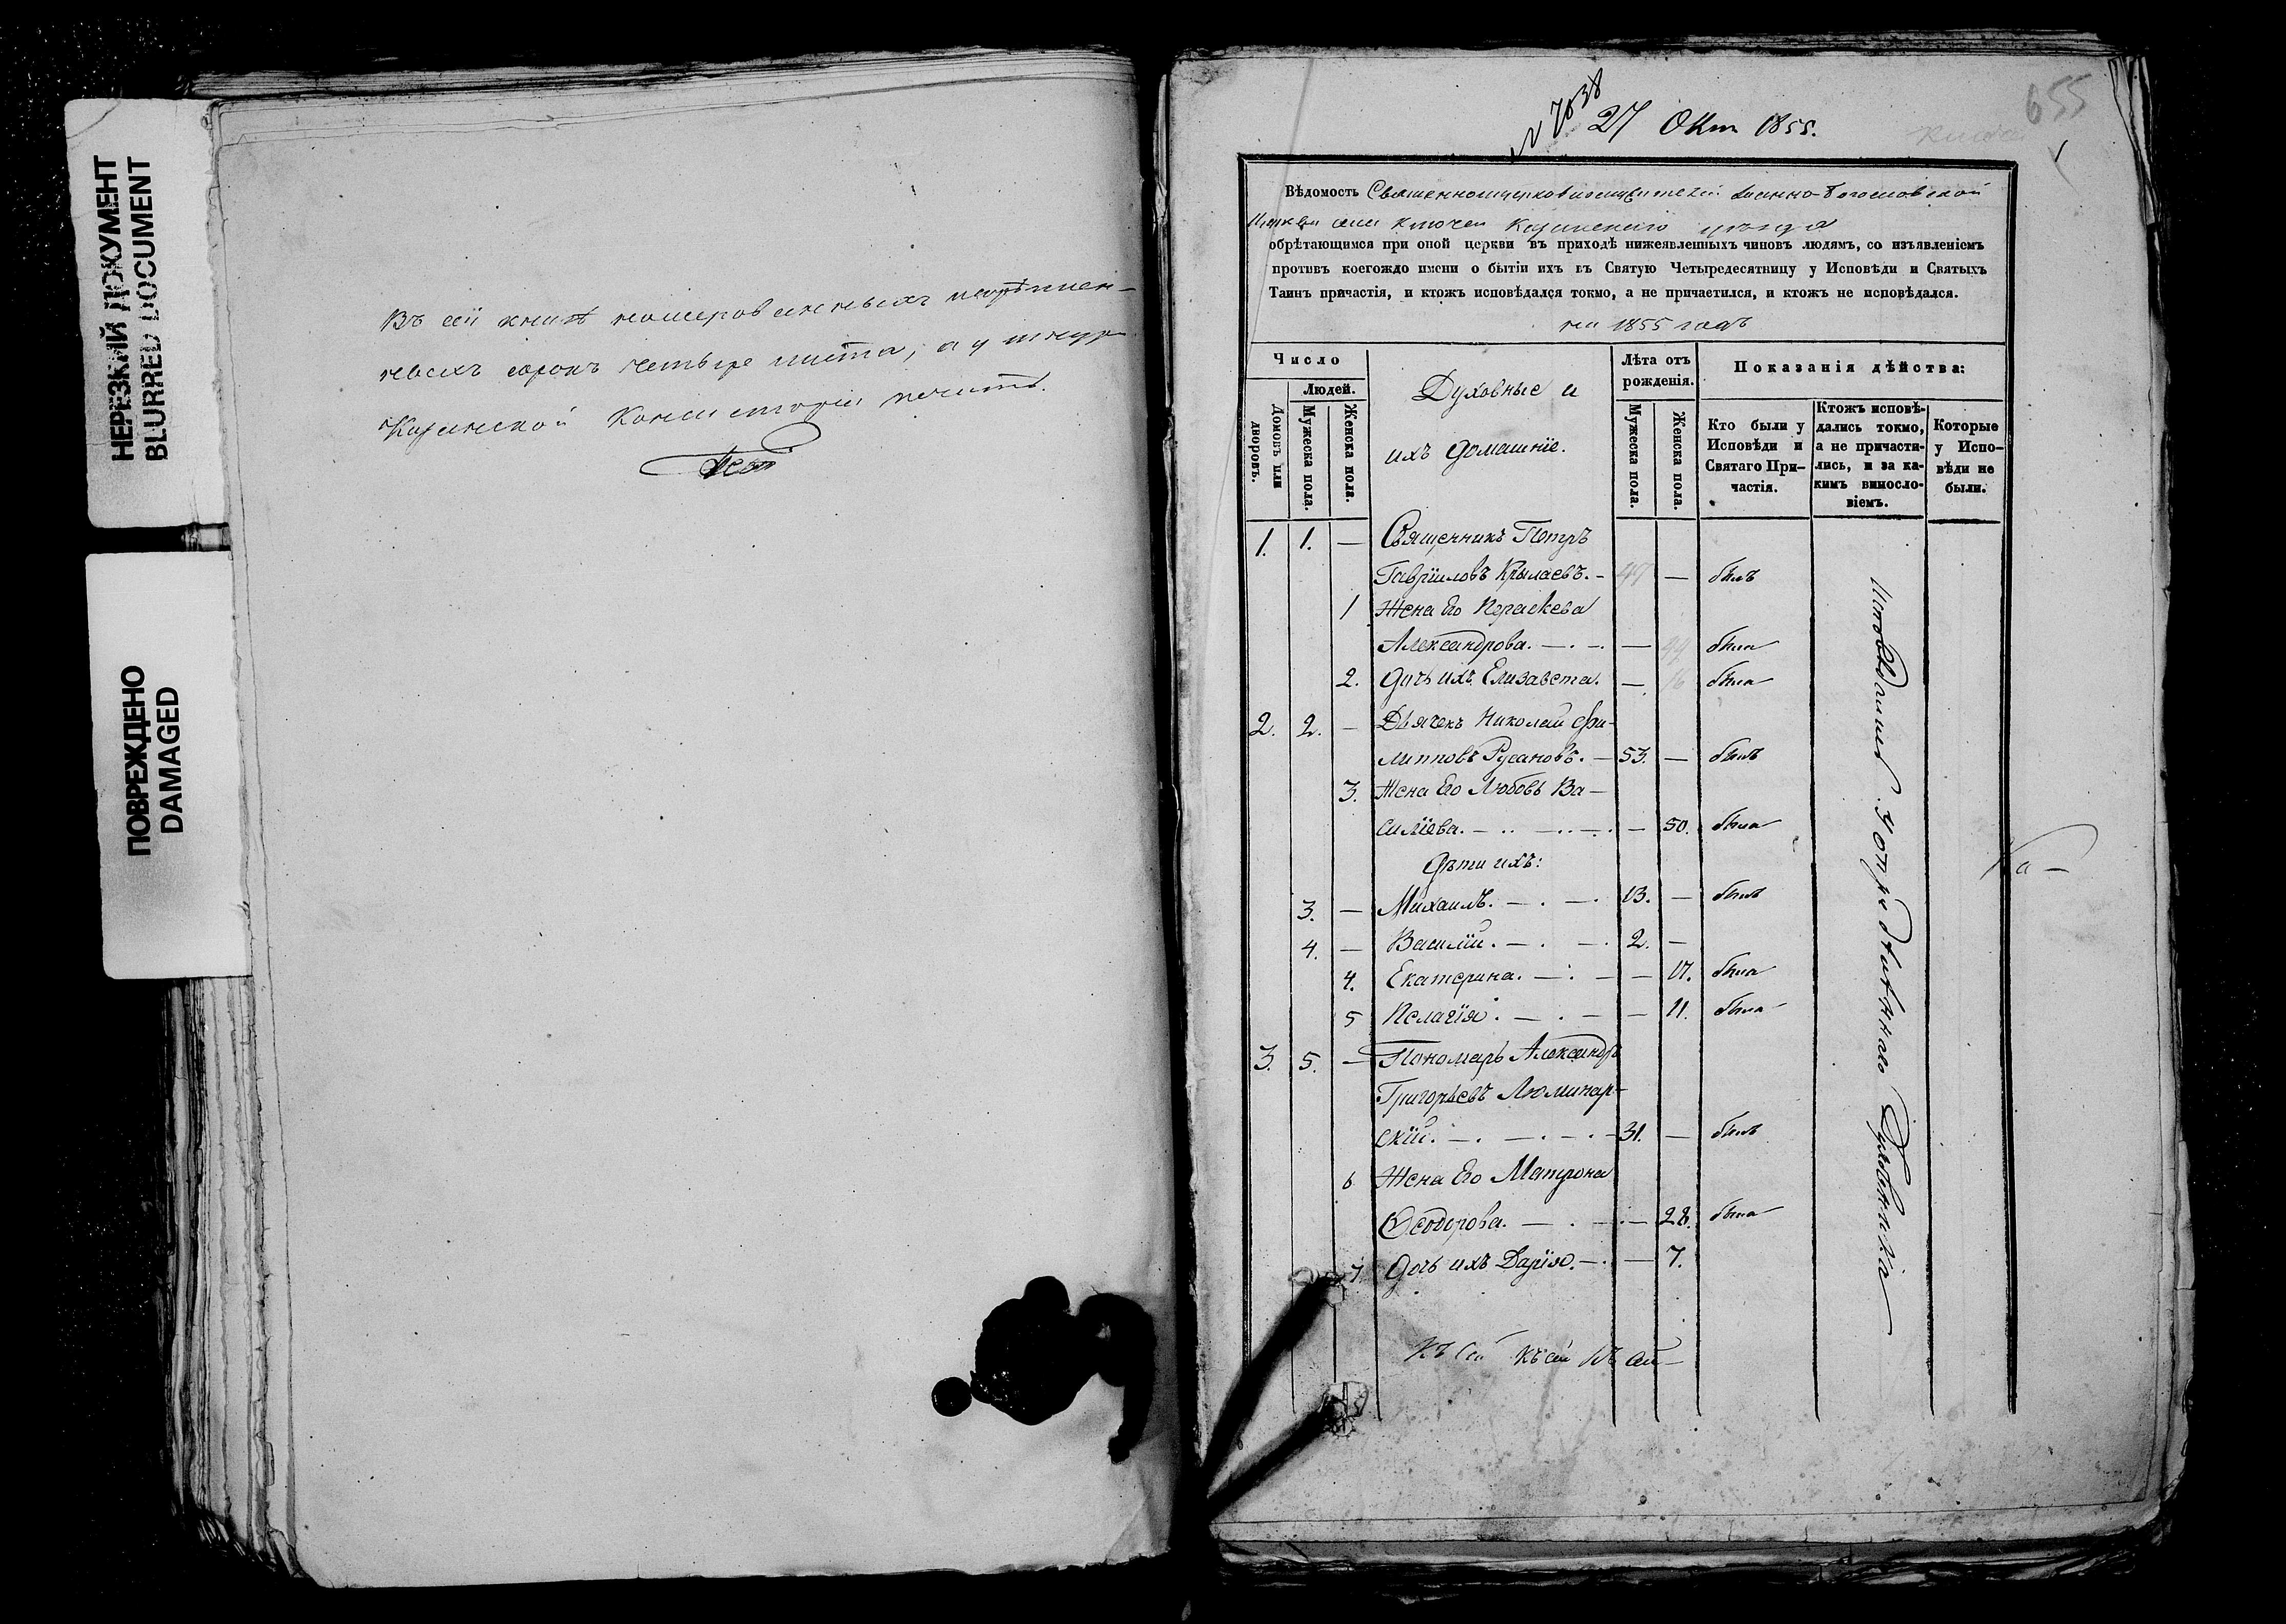 НЕРЕЗКИЙ ДОКУМЕНТ
BLURRED DOCUMENT
ПОВРЕЖДЕНО
DAMAGED
Въ сей книгѣ номерованныхъ
сорокъ четыре листа, а у шнура
Казанской Консисторіи печать.
№ 7038
27 Окт 1855.
655
Вѣдомость Священноцерковнослужителей Іоанно-Богословской
Церкви села Ключей Казанскаго уѣзда
обрѣтающимся при оной церкви въ приходѣ нижеявленныхъ чиновъ людямъ, со изъявленіемъ
противъ коегождо имени о бытіи ихъ въ Святую Четыредесятницу у Исповѣди и Святыхъ
Таинъ причастія, и ктожъ исповѣдался токмо, а не причастился, и ктожъ не исповѣдался.
на 1855 годъ
Число
Людей.
Домовъ или дворовъ.
Мужеска пола.
Женска пола.
Духовные и
ихъ домашніе.
Лѣта отъ рожденія.
Мужеска пола.
Женска пола.
Показанія дѣйства:
Кто были у Исповѣди и Святаго При-частія.
Ктожъ исповѣ-дались токмо, а не причасти-лись, и за ка-кимъ винослo-віемъ.
Которые у Испо-вѣди не были.
1. 1. — Священникъ Петръ
Гавріиловъ Крылаевъ. — 47 — былъ
1 Жена Его Параскева
Александрова. — — 44 была
2. Дочь ихъ Елизавета. — 16 была
2. 2. — Дьячекъ Николай Фи-
липповъ Русановъ. — 53. — былъ
3. Жена Его Любовь Ва-
силіева. — 50. была
Дѣти ихъ:
3. — Михаилъ. — 13. — былъ
4. — Василій. — 2. —
4. Екатерина. — — 17. была
5 Пелагія. — — 11. была
3. 5. — Пономарь Александръ
Григорьевъ Люминар-
скій. — 31. — былъ
6 Жена Его Матрона
Ѳеодорова. — — 28. была
7. Дочь ихъ Дарія. — — 7.
Къ сей